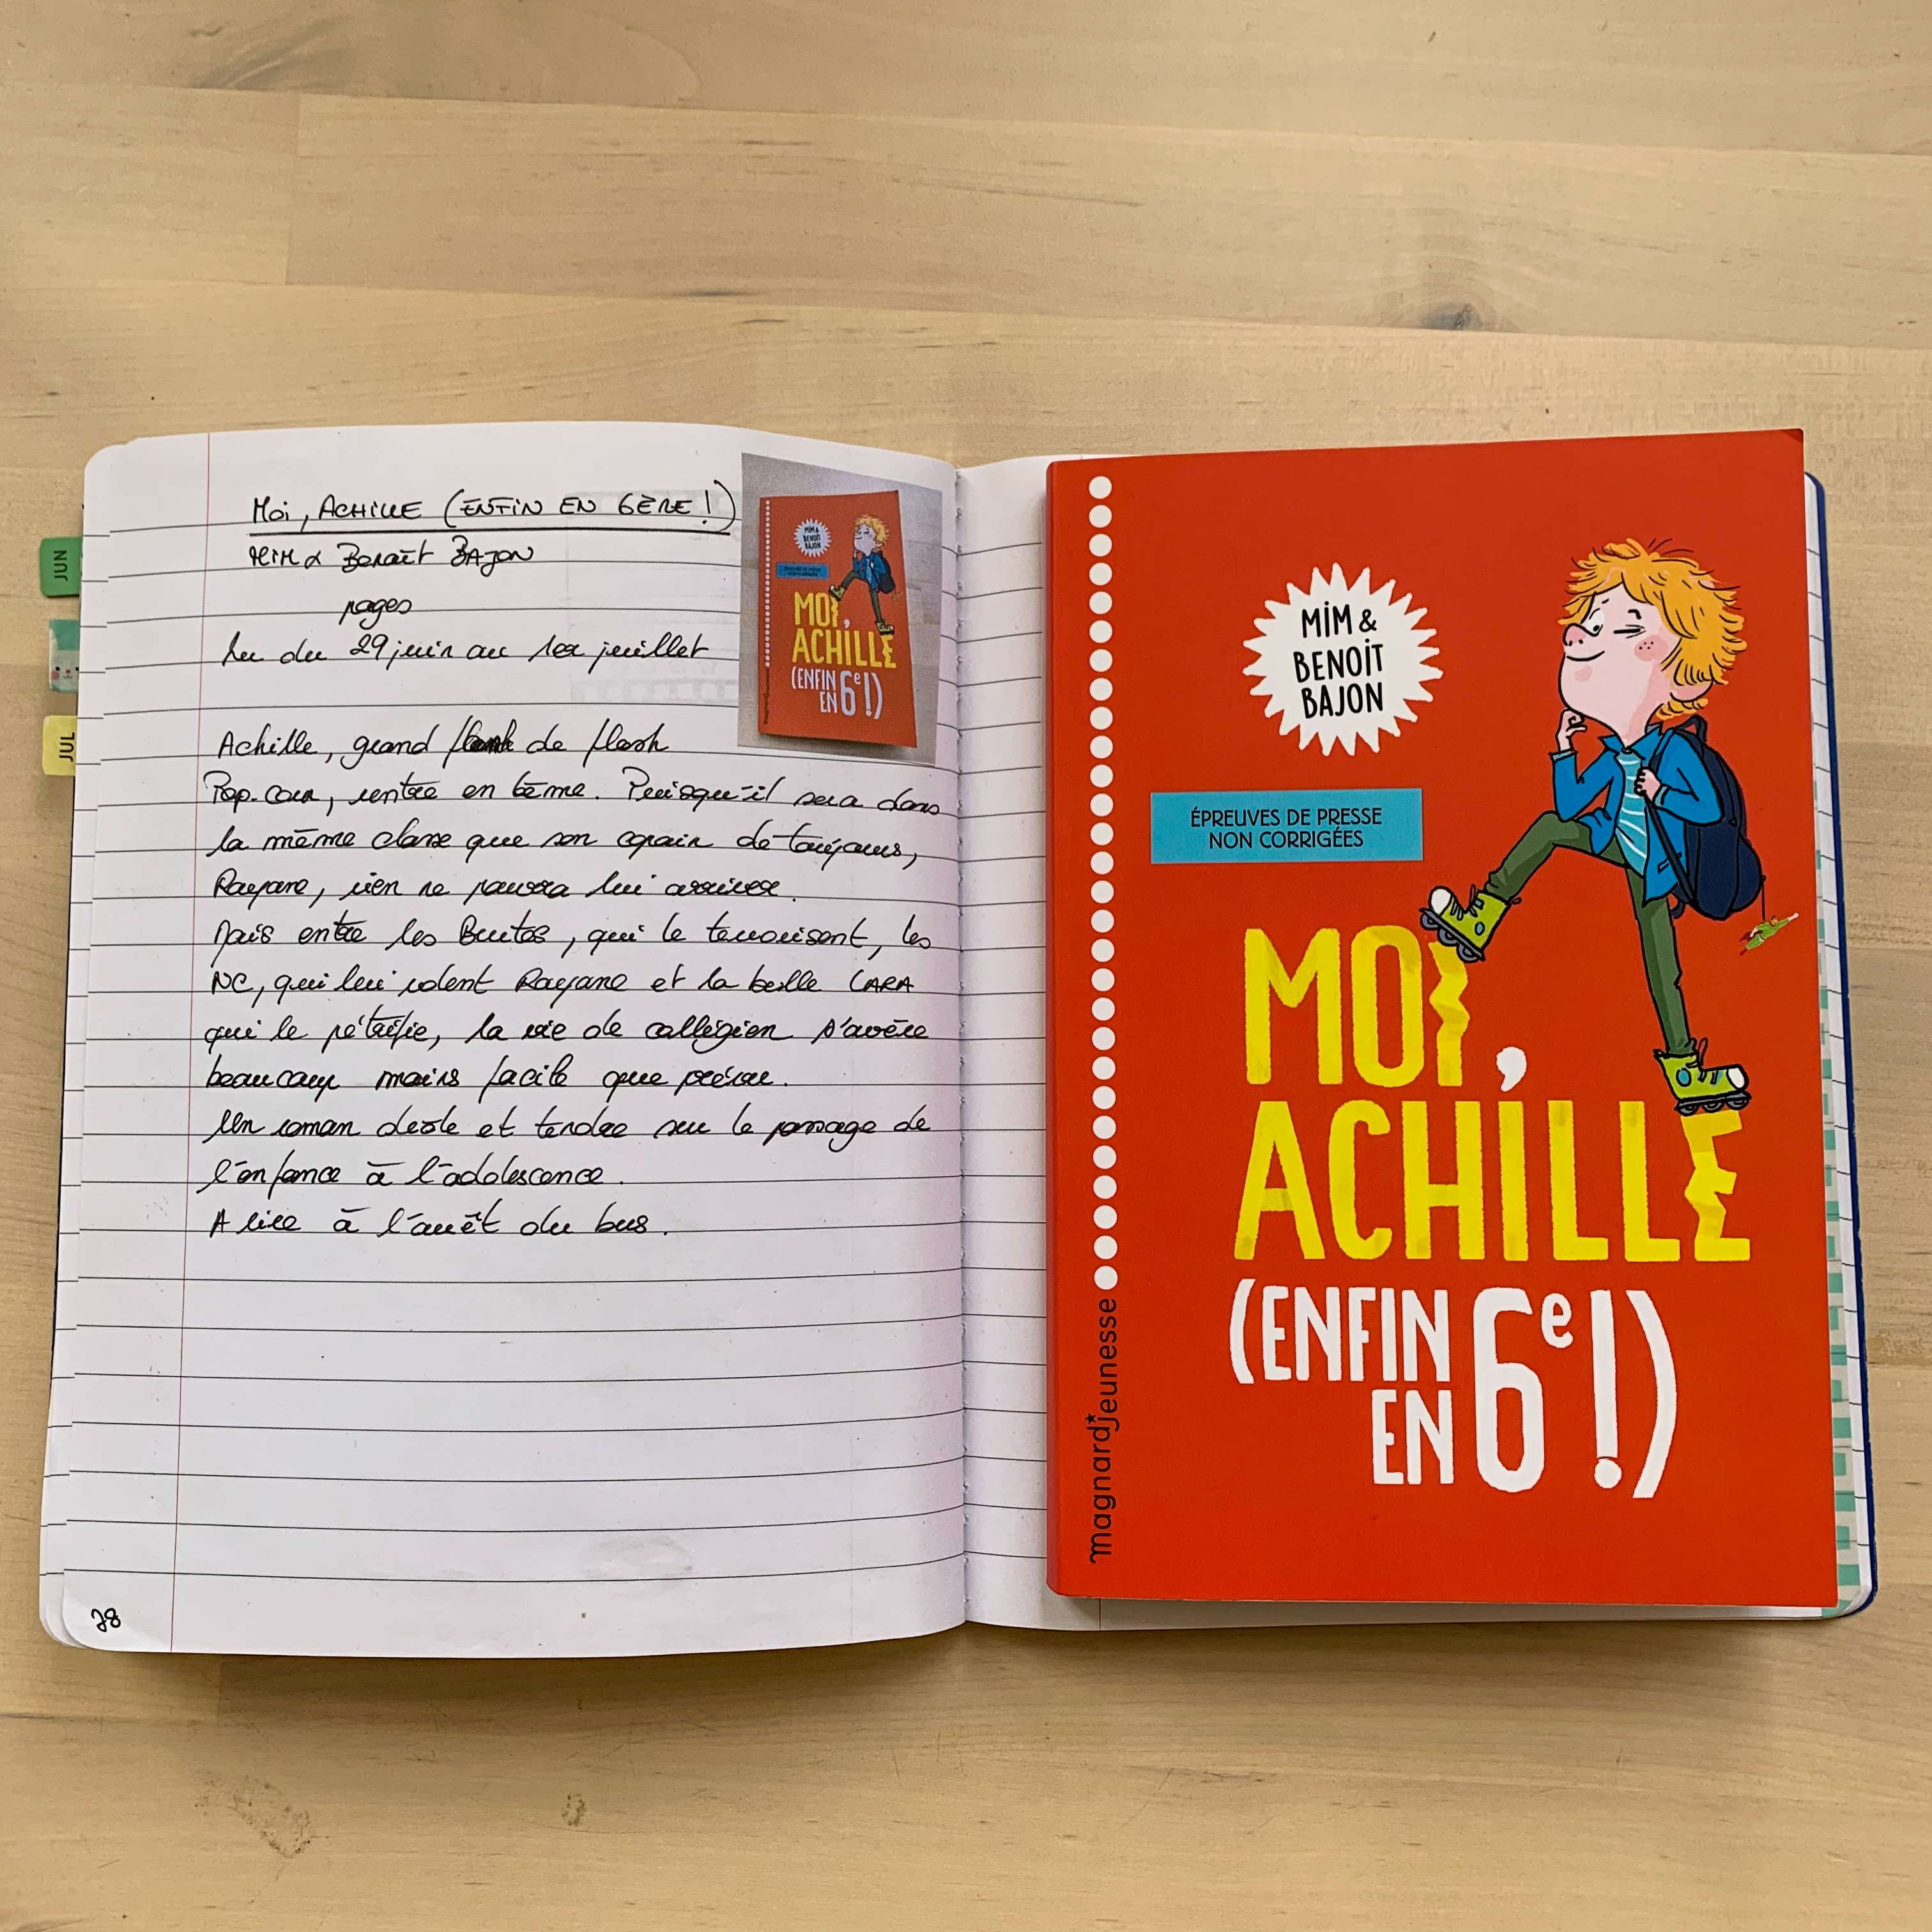 JUN
JUL
MOI, ACHILLE (ENFIN EN 6ÈRE !)
MIM & BENOÎT BAJON
pages
Lu du 29 juin au 1er juillet
Achille, grand de flash
Pop-Corn, rentre en 6ème. Puisqu'il sera dans
la même classe que son copain de toujours,
Rayane, rien ne pourra lui arriver.
Mais entre les Brutos, qui le terrorisent, les
NC, qui lui volent Rayane et la belle CARA
qui le pétrifie, la vie de collégien s'avère
beaucoup moins facile que prévu.
Un roman drôle et tendre sur le passage de
l'enfance à l'adolescence.
A lire à l'arrêt du bus.
78
MIM &
BENOIT
BAJON
ÉPREUVES DE PRESSE
NON CORRIGÉES
MOI,
ACHILLE
(ENFIN
EN 6e !)
magnard jeunesse
MIM &
BENOIT
BAJON
ÉPREUVES DE PRESSE
NON CORRIGÉES
MOI,
ACHILLE
(ENFIN
EN 6e !)
magnard jeunesse